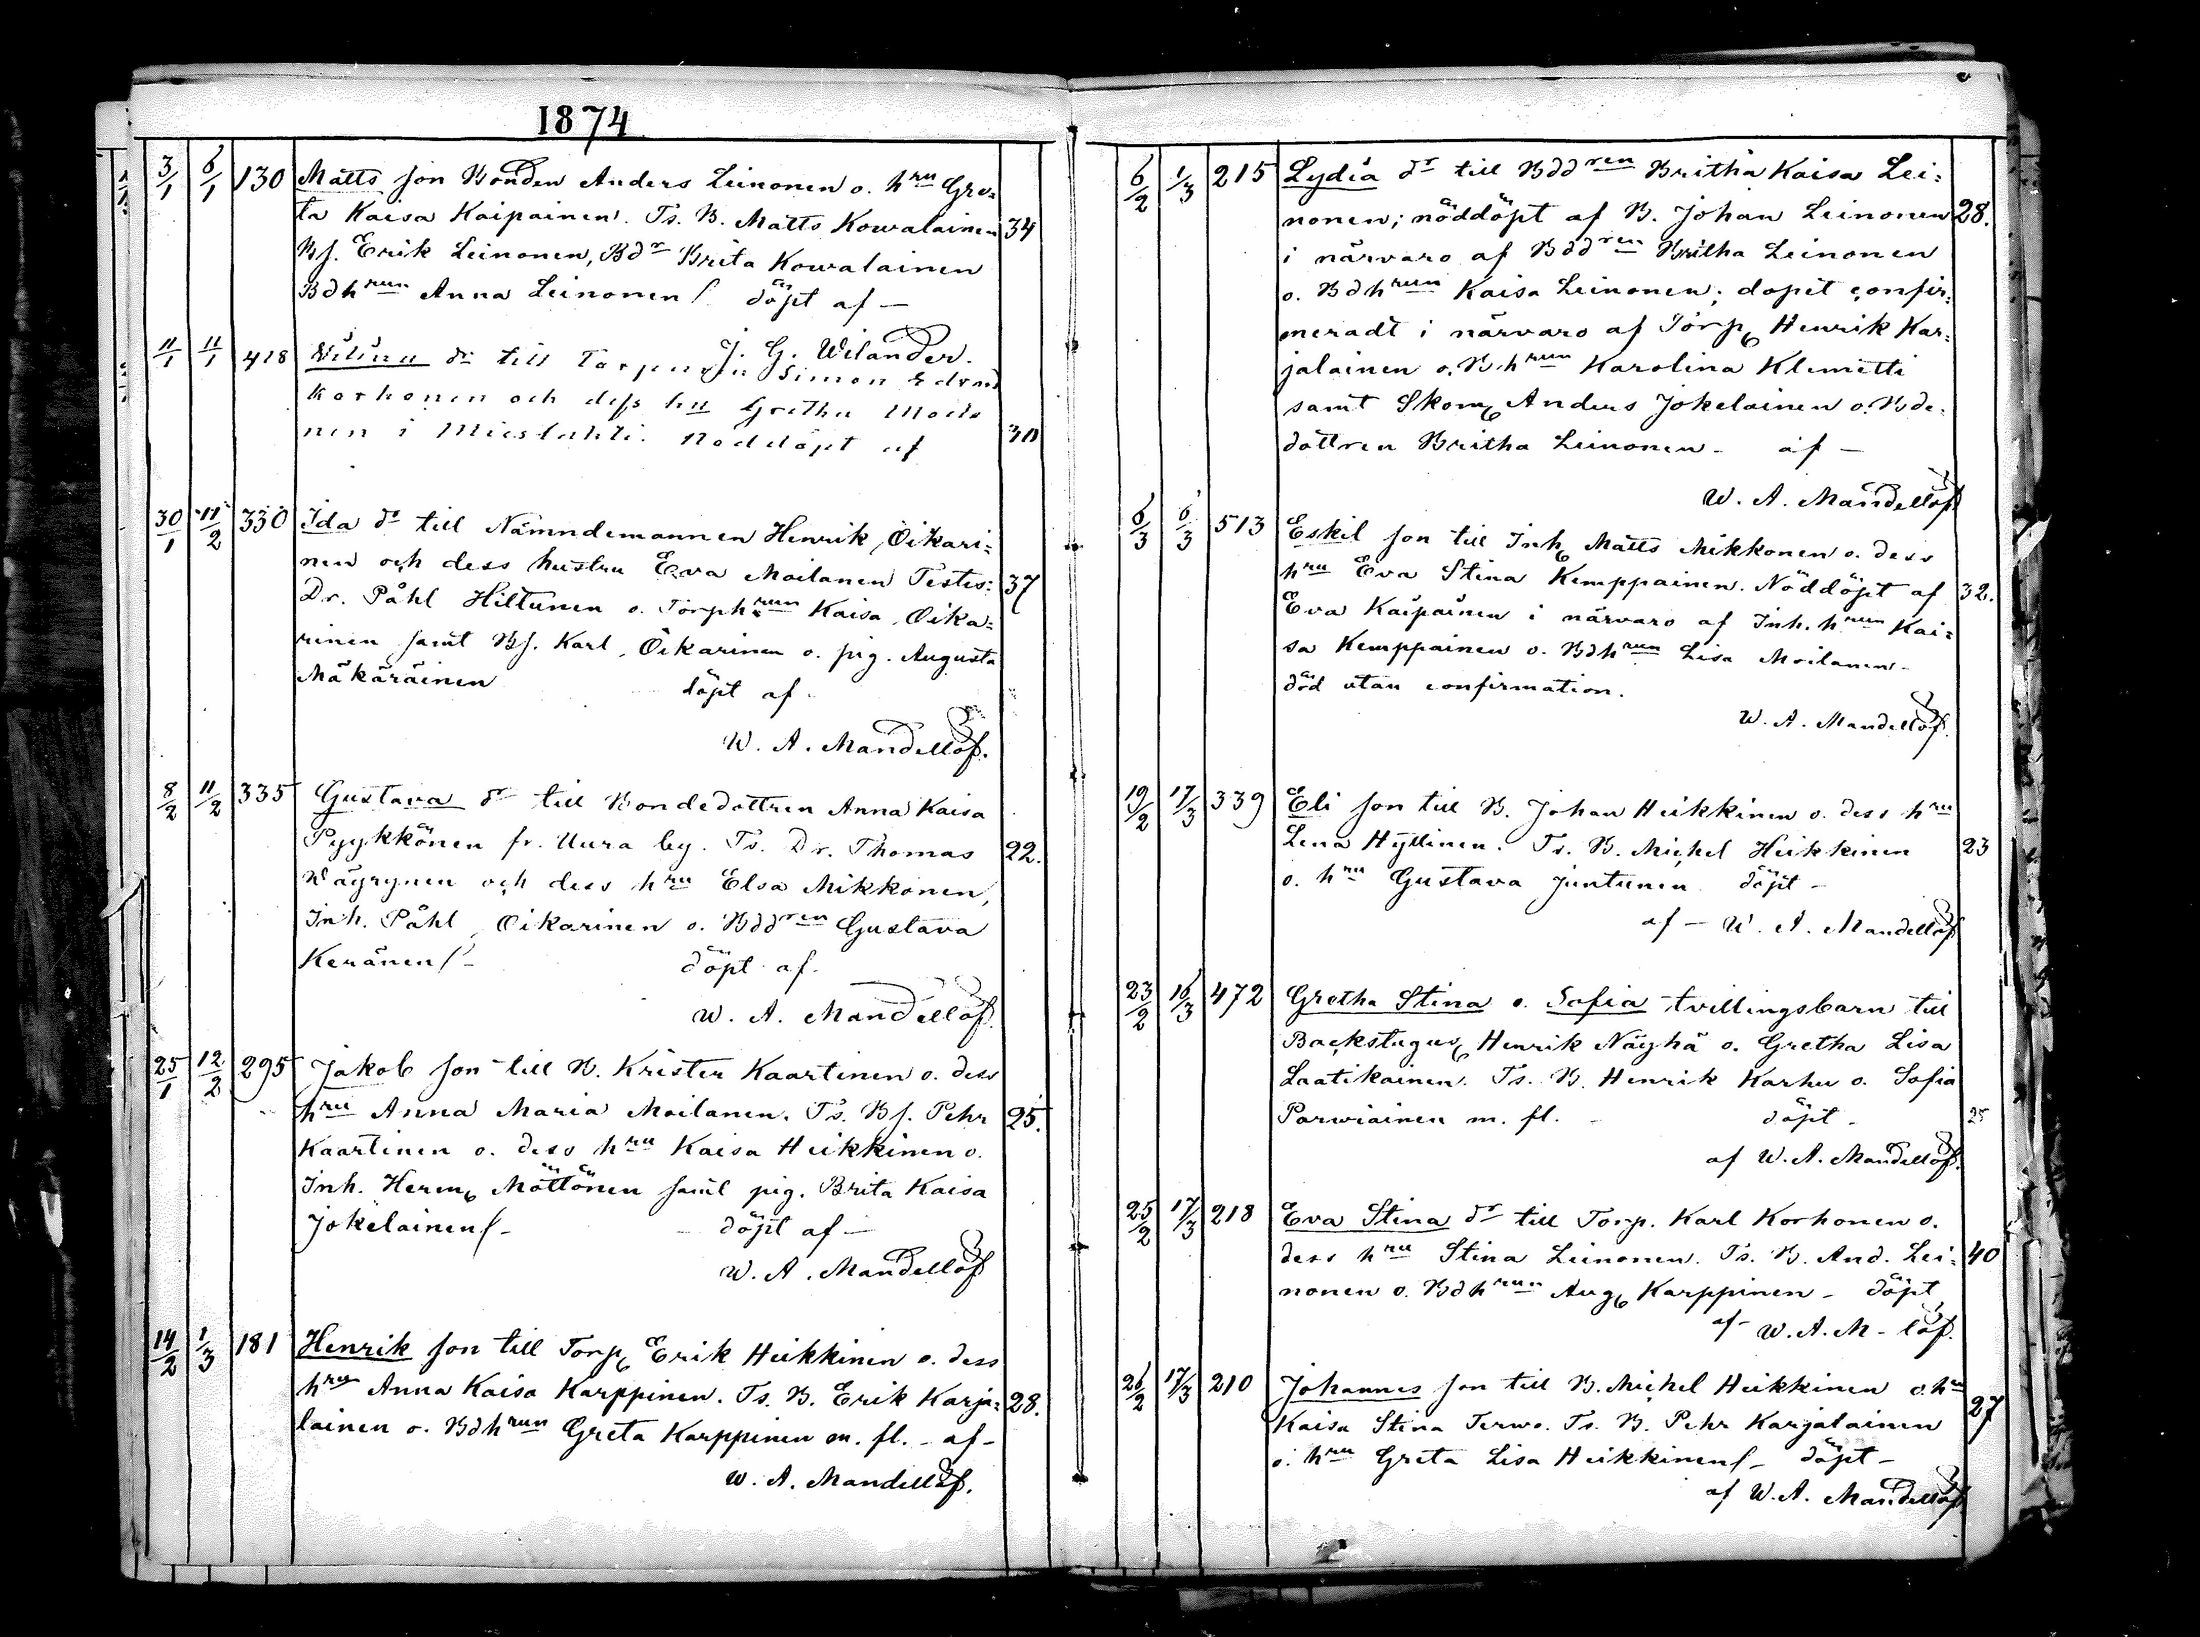 1874
3/1 6/1 130 Matts son Bonden Anders Leinonen o. hru Gre=
ta Kaisa Kaipainen. Ts. B. Matts Kowalainen 34
Bs. Erik Leinonen, Bdr Brita Kowalainen
Bdhrun Anna Leinonen döpt af —
J. G. Wilander.
11/1 11/1 418 dr till Torparen Simon
Korhonen och dess hu Gretha Moila
nen i Mieslahti. Nöddöpt af 30
30/1 11/2 330 Ida dr till Nämndemannen Henrik Oikari=
nen och dess hustru Eva Moilanen Testes: 37
Dr. Påhl Hiltunen o. Torphrun Kaisa Oika=
rinen samt Bs. Karl Oikarinen o. pig. Augusta
Mäkäräinen döpt af -
W. A. Mandellöf.
8/2 11/2 335 Gustava dr till Bondedottren Anna Kaisa
Pyykkönen fr. Uura by. Ts. Dr. Thomas 22.
Wäyrynen och dess hru Elsa Mikkonen,
Inh. Påhl Oikarinen o. Bddren Gustava
Keränen döpt af.
W. A. Mandellöf.
25/1 12/2 295 Jakob son till B. Krister Kaartinen o. dess
hru Anna Maria Moilanen. Ts. Bs. Pehr 25.
Kaartinen o. dess hru Kaisa Heikkinen o.
Inh. Herm. Möttönen samt pig. Brita Kaisa
Jokelainen - döpt af —
W. A. Mandellöf
14/2 1/3 181 Henrik son till Torp. Erik Heikkinen o. dess
hru Anna Kaisa Karppinen. Ts. B. Erik Karja= 28.
lainen o. Bdhrun Greta Karppinen m. fl. - af -
W. A. Mandellöf.
6/2 1/3 215 Lydia dr till Bddren Britha Kaisa Lei=
nonen; nöddöpt af B. Johan Leinonen 28.
i närvaro af Bddren Britha Leinonen
o. Bdhrun Kaisa Leinonen; dopet confir=
meradt i närvaro af Torp. Henrik Kar=
jalainen o. B.hrun Karolina Klemetti
samt Skom. Anders Jokelainen o. Bde=
dottren Britha Leinonen - af —
W. A. Mandellöf
6/3 6/3 513 Eskil son till Inh. Matts Mikkonen o. dess
hru Eva Stina Kemppainen. Nöddöpt af 32.
Eva Kaipainen i närvaro af Inh. hrun Kai=
sa Kemppainen o. Bdhrun Lisa Moilanen -
död utan confirmation.
W. A. Mandellöf.
19/2 17/3 339 Eli son till B. Johan Heikkinen o. dess hru
Lena Hyttinen. Ts. B. Michel Heikkinen 23
o. hru Gustava Juntunen döpt -
af — W. A. Mandellöf
23/2 16/3 472 Gretha Stina o. Sofia tvillingsbarn till
Backstugus. Henrik Näyhä o. Gretha Lisa
Laatikainen. Ts. B. Henrik Karhu o. Sofia
Parwiainen m. fl. - döpt - 25
af W. A. Mandellöf.
25/2 17/3 218 Eva Stina dr till Torp. Karl Korhonen o.
dess hru Stina Leinonen. Ts. B. And. Lei= 40
nonen o. Bdhrun Aug. Karppinen - döpt
af - W. A. M - löf.
26/2 17/3 210 Johannes son till B. Michel Heikkinen o. hru
Kaisa Stina Terwo. Ts. B. Pehr Karjalainen 27
o. hru Greta Lisa Heikkinen - döpt -
af W. A. Mandellöf